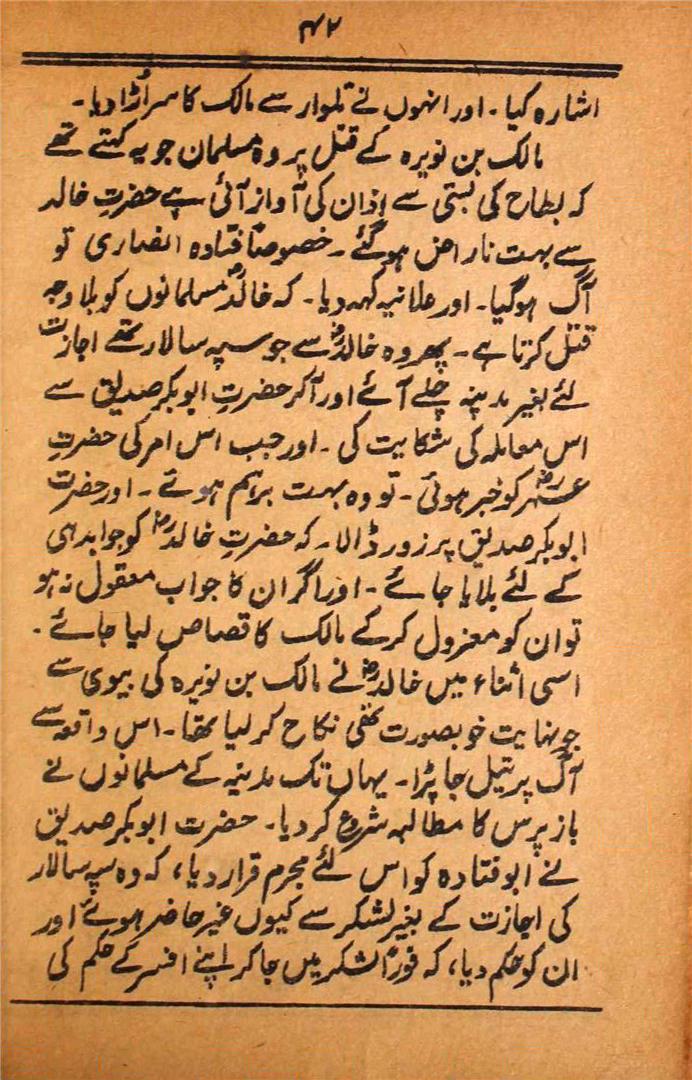 ۴۲
اشارہ کیا۔ اور انہوں نے تلوار سے مالک کا سر اُڑا دیا۔
مالک بن نویرہ کے قتل پر وہ مسلمان جو یہ کہتے تھے
کہ بطاح کی بستی سے اذان کی آواز آئی ہے حضرتِ خالد
سے بہت ناراض ہو گئے۔ خصوصاً قتادہ انصاری تو
آگ ہو گیا۔ اور علانیہ کہہ دیا۔ کہ خالدؓ مسلمانوں کو بلا وجہ
قتل کرتا ہے۔ پھر وہ خالدؓ سے جو سپہ سالار تھے اجازت
لئے بغیر مدینہ چلے آئے اور آکر حضرتِ ابوبکر صدیق سے
اس معاملہ کی شکایت کی۔ اور جب اس امر کی حضرتِ
عمرؓ کو خبر ہوئی۔ تو وہ بہت برہم ہوئے۔ اور حضرت
ابوبکر صدیق پر زور ڈالا۔ کہ حضرتِ خالدؓ کو جوابدہی
کے لئے بلایا جائے۔ اور اگر ان کا جواب معقول نہ ہو
تو ان کو معزول کرکے مالک کا قصاص لیا جائے۔
اسی اثناء میں خالدؓ نے مالک بن نویرہ کی بیوی سے
جو نہایت خوبصورت تھی نکاح کر لیا تھا۔ اس واقعہ سے
آگ پر تیل جا پڑا۔ یہاں تک مدینہ کے مسلمانوں نے
باز پرس کا مطالبہ شروع کر دیا۔ حضرت ابوبکر صدیق
نے ابو قتادہ کو اس لئے مجرم قرار دیا، کہ وہ سپہ سالار
کی اجازت کے بغیر لشکر سے کیوں غیر حاضر ہوئے اور
ان کو حکم دیا، کہ فوراً لشکر میں جا کر اپنے افسر کے حکم کی